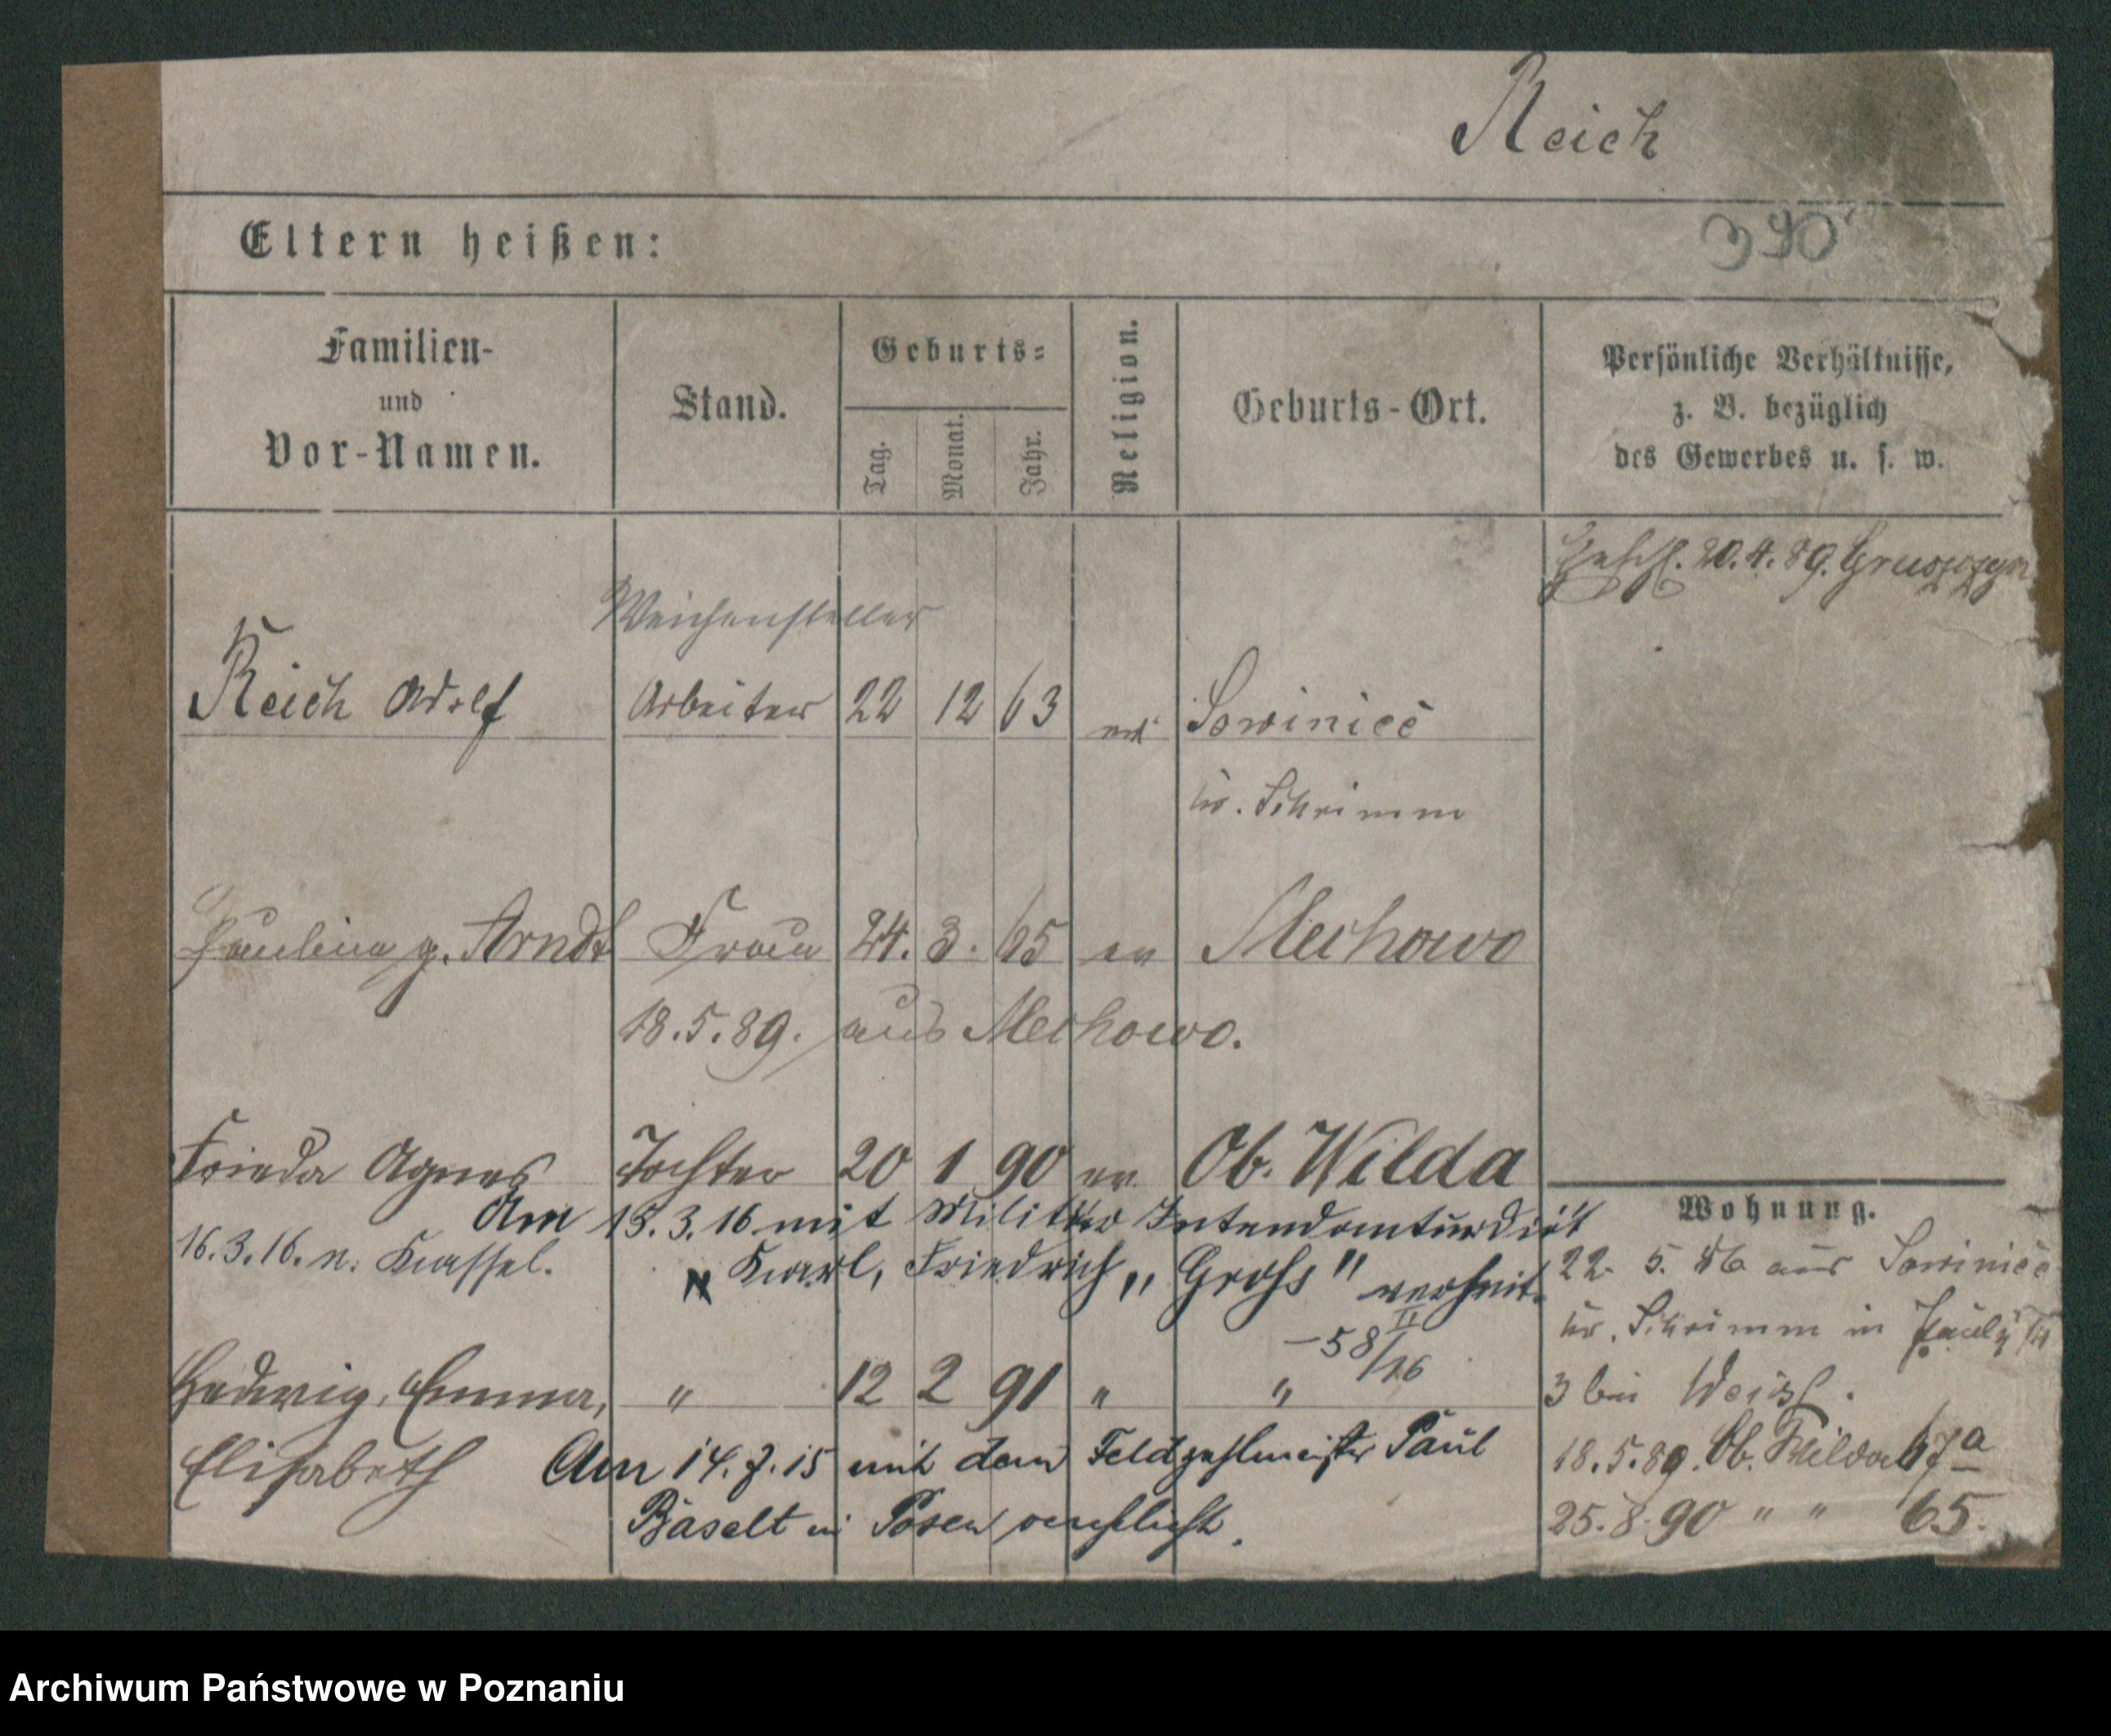 Reich
390
Eltern heißen:
Familien-
und
Vor-Namen.
Stand.
Geburts-
Tag.
Monat.
Jahr.
Religion.
Geburts-Ort.
Persönliche Verhältnisse,
z. B. bezüglich
des Gewerbes u. s. w.
20.4.89. Gruszczyn
Weichensteller
Reich Adolf Arbeiter 22 12 63 Sowiniec
Kr. Schrimm
Paulina g. Arndt Frau 24. 3. 65 ev Mechowo
18.5.89. aus Mechowo.
Frieda Agnes Tochter 20 1 90 ev. Ob. Wilda
Am 15.3.16 mit Militär Intendanturdiät
16.3.16. n. Kassel. Karl, Friedrich „Groß" verheir.
-58/16 II
Hedwig, Emma, " 12 2 91 " "
Elisabeth Am 14.7.15 mit dem Feldzahlmeister Paul
Baselt in Posen verehelicht.
Wohnung.
22. 5. 86 aus Sowiniec
Kr. Schrimm in
3 bei
18.5.89. Ob. Wilda 67a
25.8.90 " " 65.
Archiwum Państwowe w Poznaniu